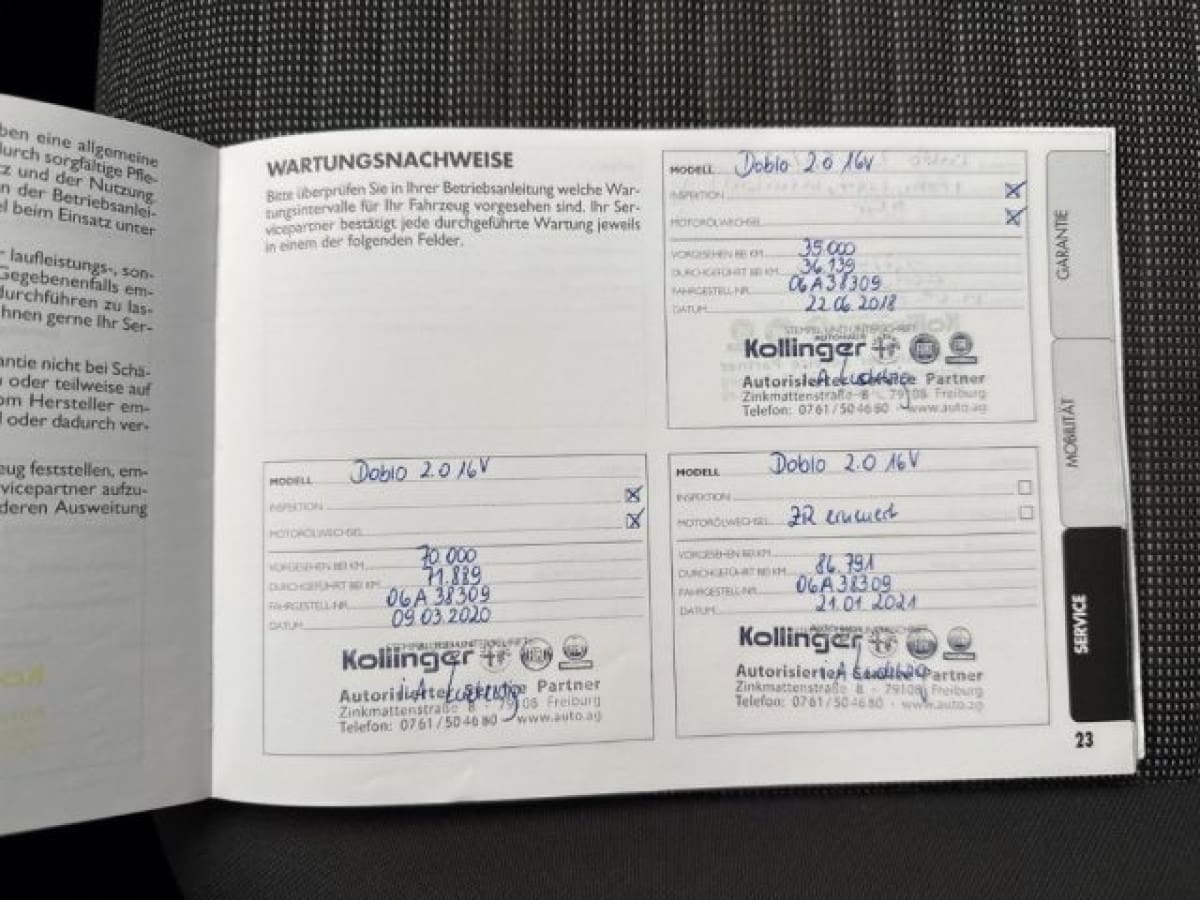 ben eine allgemeine
durch sorgfältige Pfle-
z und der Nutzung
n der Betriebsanlei-
el beim Einsatz unter
r laufleistungs-, son-
Gegebenenfalls em-
durchführen zu las-
hnen gerne Ihr Ser-
antie nicht bei Schä-
oder teilweise auf
om Hersteller em-
l oder dadurch ver-
eug feststellen, em-
vicepartner aufzu-
deren Ausweitung
WARTUNGSNACHWEISE
Bitte überprüfen Sie in Ihrer Betriebsanleitung welche War-
tungsintervalle für Ihr Fahrzeug vorgesehen sind. Ihr Ser-
vicepartner bestätigt jede durchgeführte Wartung jeweils
in einem der folgenden Felder.
MODELL Doblo 2.0 16V
INSPEKTION
MOTORÖLWECHSEL
VORGESEHEN BEI KM 35.000
DURCHGEFÜHRT BEI KM 36.139
FAHRGESTELL-NR. 06A38309
DATUM 22.06.2018
STEMPEL UND UNTERSCHRIFT
AUTOHAUS
Kollinger
Autorisierter Service Partner
Zinkmattenstraße 8 - 79108 Freiburg
Telefon: 0761/50 46 80 - www.auto.ag
MODELL Doblo 2.0 16V
INSPEKTION
MOTORÖLWECHSEL
VORGESEHEN BEI KM 70.000
DURCHGEFÜHRT BEI KM 71.889
FAHRGESTELL-NR. 06A38309
DATUM 09.03.2020
Kollinger
Autorisierter Partner
Zinkmattenstraße 8 - 79108 Freiburg
Telefon: 0761/50 46 80 - www.auto.ag
MODELL Doblo 2.0 16V
INSPEKTION
MOTORÖLWECHSEL ZR erneuert
VORGESEHEN BEI KM
DURCHGEFÜHRT BEI KM 86.791
FAHRGESTELL-NR. 06A38309
DATUM 21.01.2021
Kollinger
Autorisierter Partner
Zinkmattenstraße 8 - 79108 Freiburg
Telefon: 0761/50 46 80 - www.auto.ag
GARANTIE
MOBILITÄT
SERVICE
23